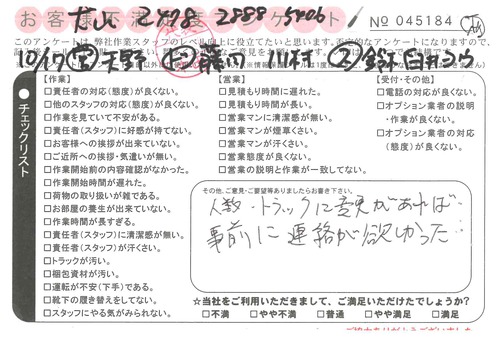 お客様不満足度アンケート
No 045184
2478 2888 5406
このアンケートは、弊社作業スタッフのレベル向上に役立てたいと思います。
10/17
チェックリスト
【作業】
□責任者の対応(態度)が良くない。
□他のスタッフの対応(態度)が良くない。
□作業を見ていて不安がある。
□責任者(スタッフ)に好感が持てない。
□お客様への挨拶が出来ていない。
□ご近所への挨拶・気遣いが無い。
□作業開始前の内容確認がなかった。
□作業開始時間が遅れた。
□荷物の取り扱いが雑である。
□お部屋の養生が出来ていない。
□作業時間が長すぎる。
□責任者(スタッフ)に清潔感が無い。
□責任者(スタッフ)が汗くさい。
□トラックが汚い。
□梱包資材が汚い。
□運転が不安(下手)である。
□靴下の履き替えをしてない。
□スタッフにやる気がみられない。
【営業】
□見積もり時間に遅れた。
□見積もり時間が長い。
□営業マンに清潔感が無い。
□営業マンが煙草くさい。
□営業マンが汗くさい。
□営業態度が良くない。
□営業の説明と作業が一致してない。
【受付・その他】
□電話の対応が良くない。
□オプション業者の説明
・作業が良くない。
□オプション業者の対応
(態度)が良くない。
その他、ご意見・ご要望等ありましたらお書き下さい。
人数・トラックに変更があれば
事前に連絡が欲しかった
☆当社をご利用いただきまして、ご満足いただけたでしょうか?
□不満 □やや不満 □普通 □やや満足 □満足